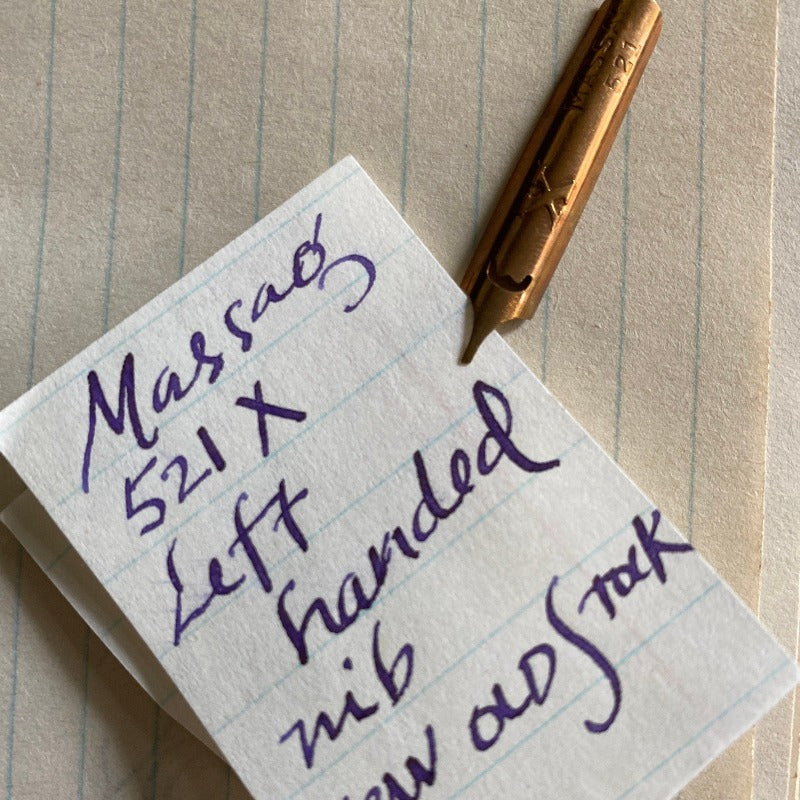 MASSA
521
X
Massag
521 X
Left
handed
nib
ew OLD Stock